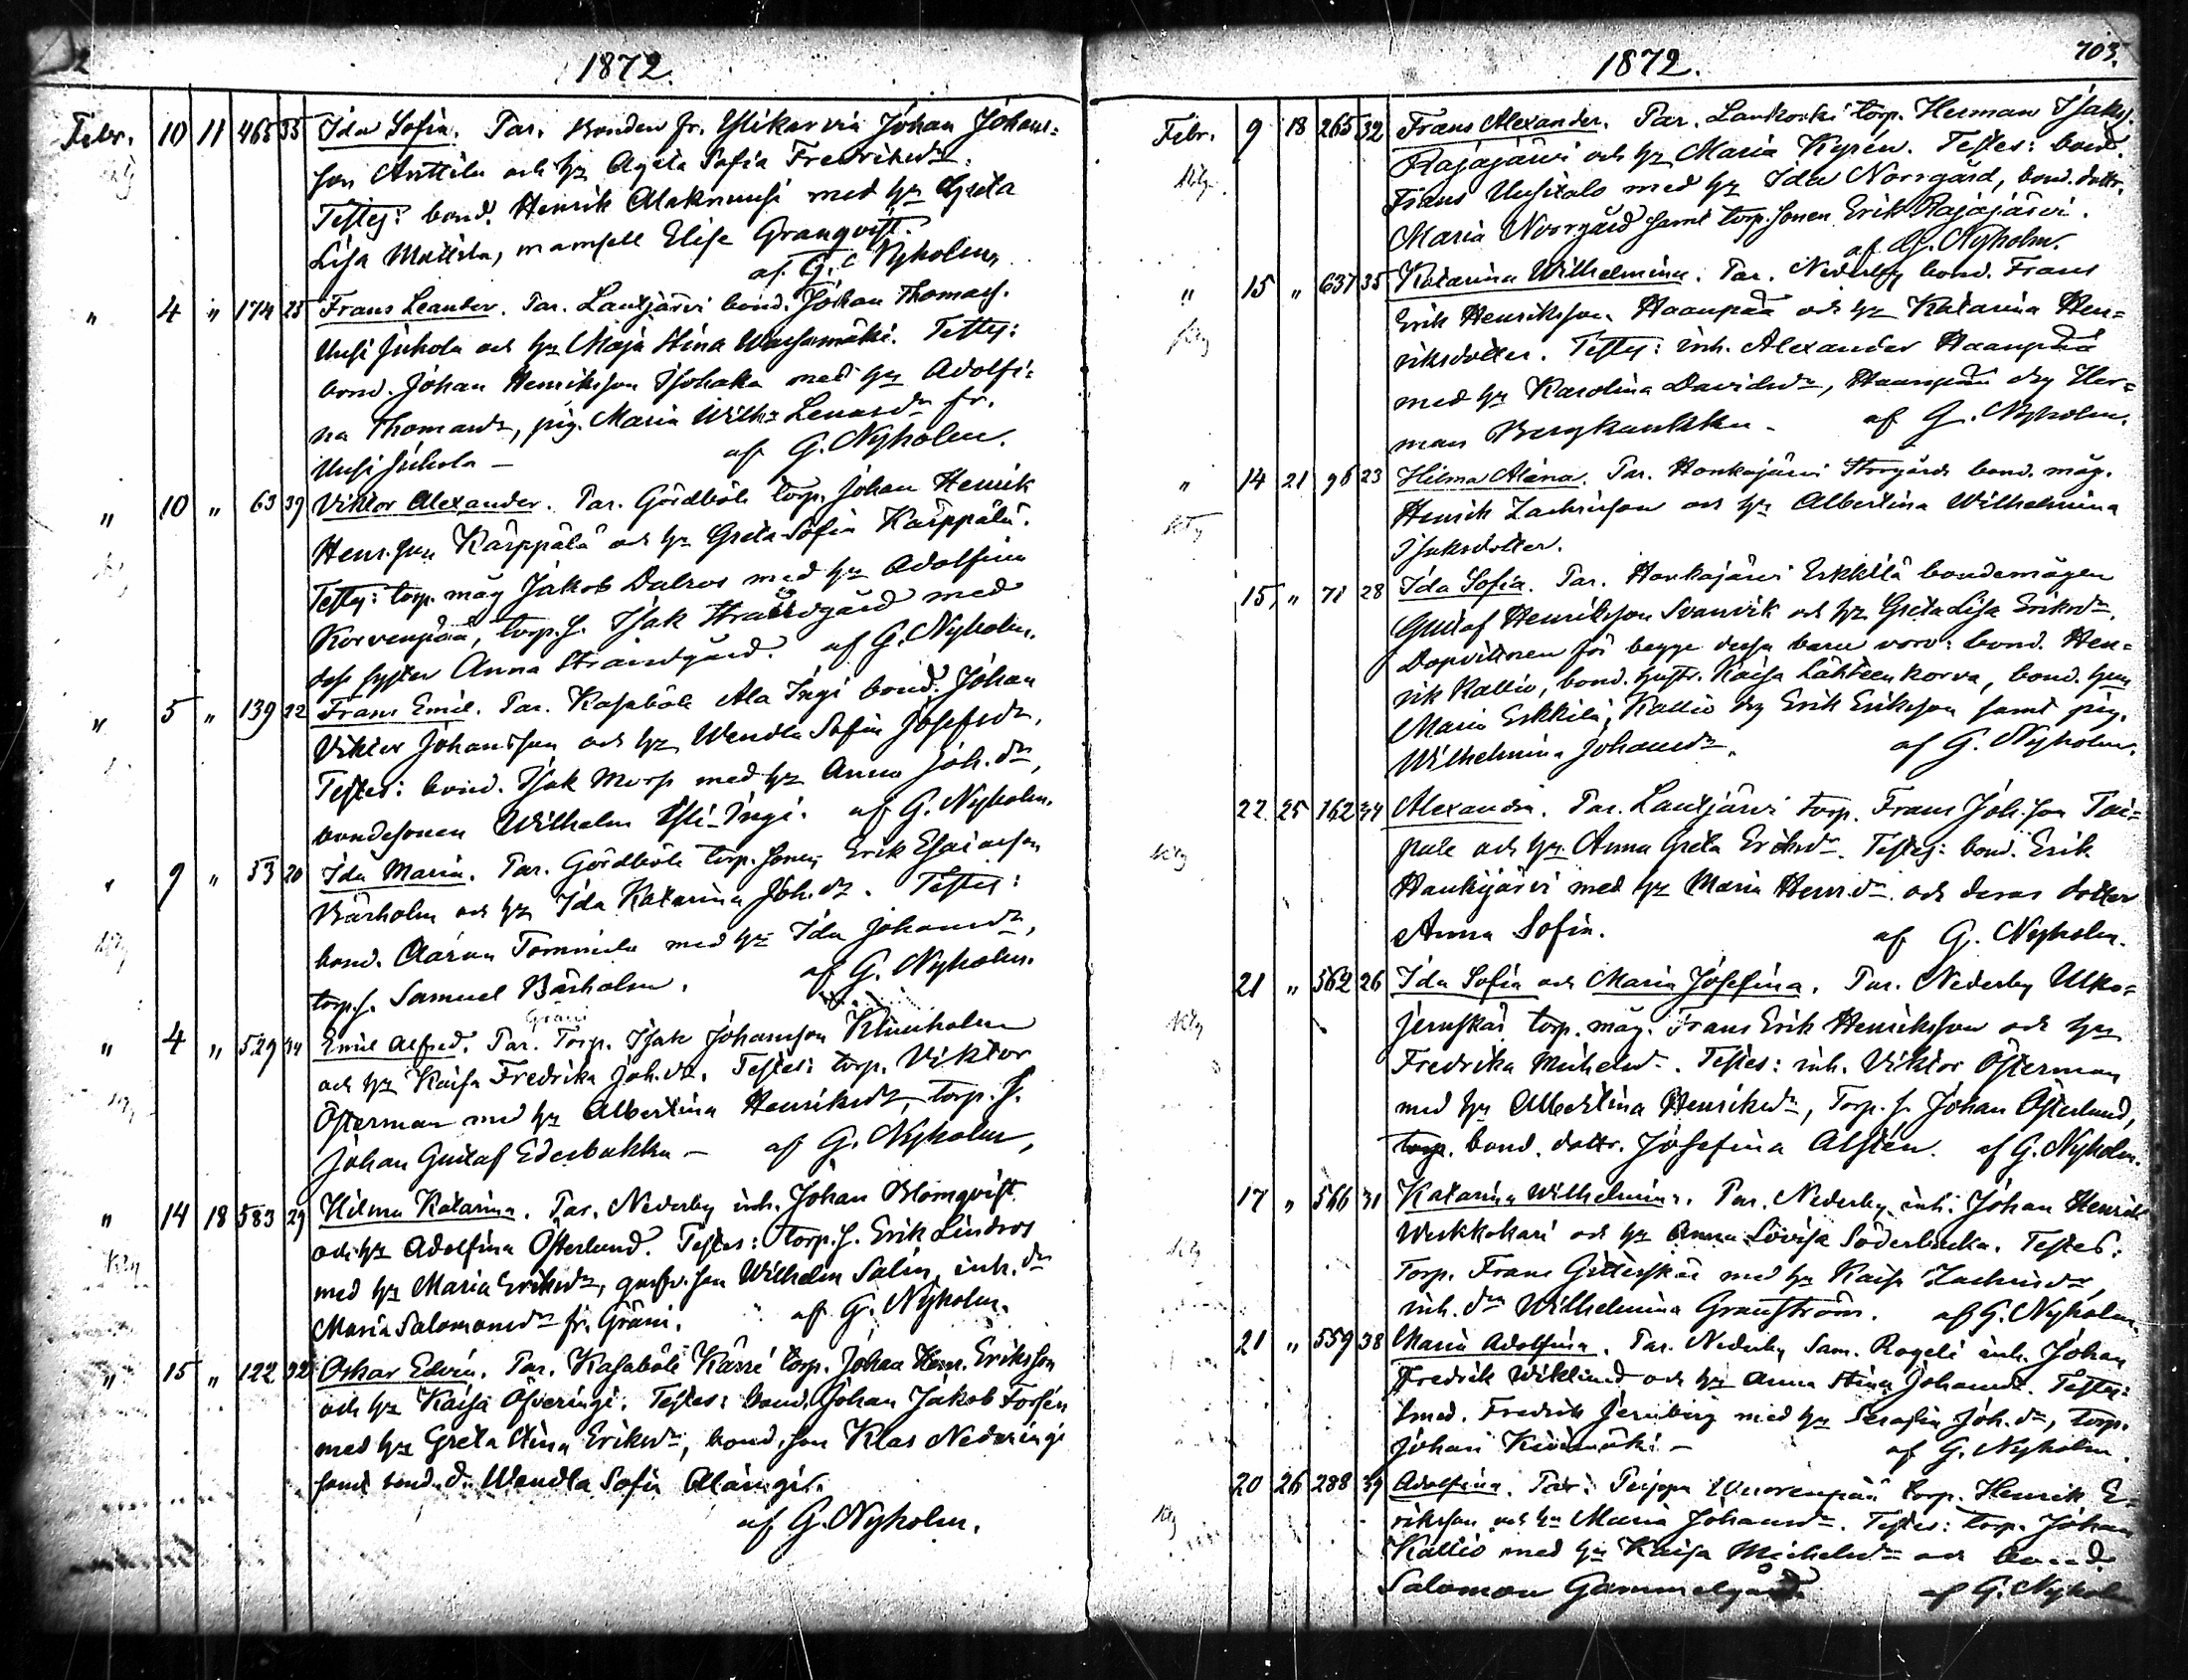 1872.
Febr. 10 11 465 35 Ida Sofia. Par. Bonden fr. Ylikarvia Johan Johans-
son Anttila och h. Agata Sofia Fredriksdr.
Testes: bond. Henrik Alaknuusi med h. Greta
Lisa Mattila, mamsell Elise Granqvist.
af G. Nyholm
" 4 " 174 25 Frans Leander. Par. Lautjärvi bond. Johan Thomass.
Uusi Juhola och h. Maja Stina. Testes:
bond. Johan Henriksson Isohaka med h. Adolfi-
na Thomasdr, pig. Maria Wilh. Lenasdr fr.
Uusi Juhola — af G. Nyholm.
" 10 " 63 39 Viktor Alexander. Par. Gördböle torp. Johan Henrik
Henr.son Karppälä och h. Greta Sofia Karppälä.
Testes: torp. måg Jakob Dalros med h. Adolfina
Korvenpää, torp.s. Isak Strandgård med
dess syster Anna Strandgård. af G. Nyholm.
" 5 " 139 22 Frans Emil. Par. Kasaböle Ala Ingi bond. Johan
Viktor Johansson och h. Wendla Sofia Josefsdr.
Testes: bond. Isak Mors med h. Anna Joh.dr,
bondesonen Wilhelm Yli-Ingi. af G. Nyholm.
" 9 " 53 20 Ida Maria. Par. Gördböle torp.sonen Erik Esaiasson
Bärholm och h. Ida Katarina Joh.dr. Testes:
bond. Aaron Tommila med h. Ida Johansdr,
torp.s. Samuel Bärholm. af G. Nyholm.
Gräni
" 4 " 529 34 Emil Alfred. Par. Torp. Isak Johansson Klinholm
och h. Kaisa Fredrika Joh.dr. Testes: torp. Viktor
Österman med h. Albertina Henriksdr, torp.s.
Johan Gustaf Ederbakka — af G. Nyholm,
" 14 18 583 29 Hilma Katarina. Par. Nederby inh. Johan Blomqvist
och h. Adolfina Österlund. Testes: torp.s. Erik Lindros
med h. Maria Eriksdr, son Wilhelm Salin, inh.dr
Maria Salomonsdr fr. Gräni. af G. Nyholm.
" 15 " 122 32 Oskar Edvin. Par. Kasaböle Karri torp. Johan Henr. Eriksson
och h. Kaisa Öfveringi. Testes: bond. Johan Jakob Forsén
med h. Greta Stina Eriksdr, bond.son Klas Nederingi
samt bond.d. Wendla Sofia Alaingi.
af G. Nyholm.
1872. 703.
Febr. 9 18 265 32 Frans Alexander. Par. Lankoski torp. Herman Isakss.
Rajajärvi och h. Maria Kyrén. Testes: bond.
Frans Uusitalo med h. Ida Norrgård, bond.dottr.
Maria Norrgård samt torp.sonen Erik Rajajärvi.
af G. Nyholm.
" 15 " 637 35 Katarina Wilhelmina. Par. Nederby bond. Frans
Erik Henriksson Haanpää och h. Katarina Hen-
riksdotter. Testes: inh. Alexander Haanpää
med h. Karolina Davidsdr, Haanpää drg Her-
man Bergkaukka. af G. Nyholm.
" 14 21 96 23 Hilma Alina. Par. Honkajärvi Storgårds bond.måg.
Henrik Zachrisson och h. Albertina Wilhelmina
Isaksdotter.
15 " 71 28 Ida Sofia. Par. Honkajärvi Erkkilä bondemågen
Gustaf Henriksson Svanvik och h. Greta Lisa Eriksdr.
Dopvittnen för begge dessa barn voro: bond. Hen-
rik Kallio, bond. hustr. Kaisa Lähteenkorva, bond. h.
Maria Erkkilä, Kallio drg Erik Eriksson samt pig.
Wilhelmina Johansdr. af G. Nyholm.
22 25 162 34 Alexandra. Par. Lautjärvi torp. Frans Joh.son Tai-
pale och h. Anna Greta Eriksdr. Testes: bond. Erik
Haukijärvi med h. Maria Henr.dr och deras dotter
Anna Sofia. af G. Nyholm.
21 " 562 26 Ida Sofia och Maria Josefina. Par. Nederby Ulko-
jernskär torp.måg. Frans Erik Henriksson och h.
Fredrika Michelsdr. Testes: inh. Viktor Österman
med h. Albertina Henriksdr, Torp.s. Johan Österlund,
torp. bond. dottr. Josefina Alstén. af G. Nyholm.
17 " 566 31 Katarina Wilhelmina. Par. Nederby inh. Johan Henrik
Werkkokari och h. Anna Lovisa Söderbacka. Testes:
Torp. Frans med h. Kaisa Zachrisdr,
inh.dr Wilhelmina Granström. af G. Nyholm.
21 " 559 38 Maria Adolfina. Par. Nederby Sam. Rogeli inh. Johan
Fredrik Wiklund och h. Anna Stina Johansdr. Testes:
smed. Fredrik Jernberg med h. Serafia Joh.dr, torp.
Johan Kivimäki — af G. Nyholm.
20 26 288 39 Adolfina. Par: Peippu Wuorenpää torp. Henrik E-
riksson och h. Maria Johansdr. Testes: torp. Johan
Kallio med h. Kaisa Michelsdr och
Salomon Gammelgård. af G. Nyholm